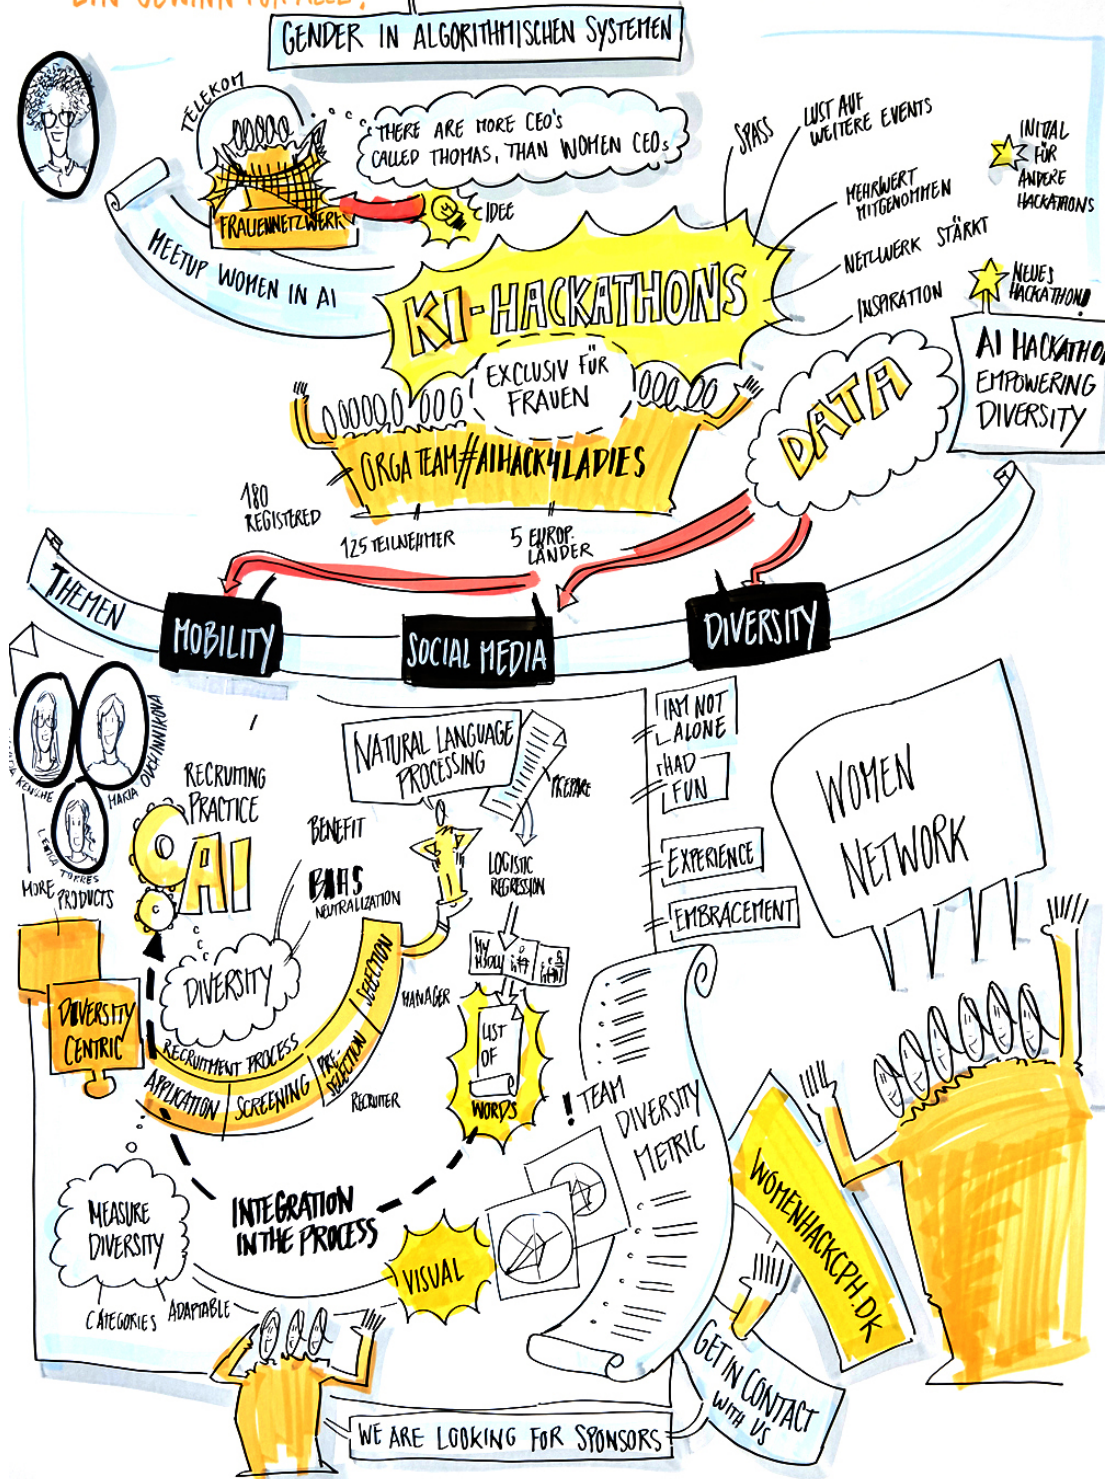 EIN GEWINN FÜR ALLE!
GENDER IN ALGORITHMISCHEN SYSTEMEN
TELEKOM
THERE ARE MORE CEO's
CALLED THOMAS, THAN WOMEN CEOs
FRAUENNETZWERK
IDEE
MEETUP WOMEN IN AI
KI-HACKATHONS
EXCLUSIV FÜR
FRAUEN
SPASS
LUST AUF
WEITERE EVENTS
MEHRWERT
MITGENOMMEN
NETZWERK STÄRKT
INSPIRATION
INITIAL
FÜR
ANDERE
HACKATHONS
NEUES
HACKATHON!
AI HACKATHO
EMPOWERING
DIVERSITY
ORGA TEAM #AIHACK4LADIES
DATA
180
REGISTERED
125 TEILNEHMER
5 EUROP.
LÄNDER
THEMEN
MOBILITY
SOCIAL MEDIA
DIVERSITY
MARIA OVCHINNIKOVA
TORRES
RECRUITING
PRACTICE
AI
MORE PRODUCTS
DIVERSITY
CENTRIC
BENEFIT
BIAS
NEUTRALIZATION
DIVERSITY
RECRUITMENT PROCESS
APPLICATION
SCREENING
PRE
SELECTION
SELECTION
MANAGER
RECRUITER
NATURAL LANGUAGE
PROCESSING
PREPARE
LOGISTIC
REGRESSION
LIST
OF
WORDS
I AM NOT
ALONE
HAD
FUN
EXPERIENCE
EMBRACEMENT
WOMEN
NETWORK
! TEAM
DIVERSITY
METRIC
MEASURE
DIVERSITY
CATEGORIES
ADAPTABLE
INTEGRATION
IN THE PROCESS
VISUAL
WOMENHACKCPH.DK
GET IN CONTACT
WITH US
WE ARE LOOKING FOR SPONSORS